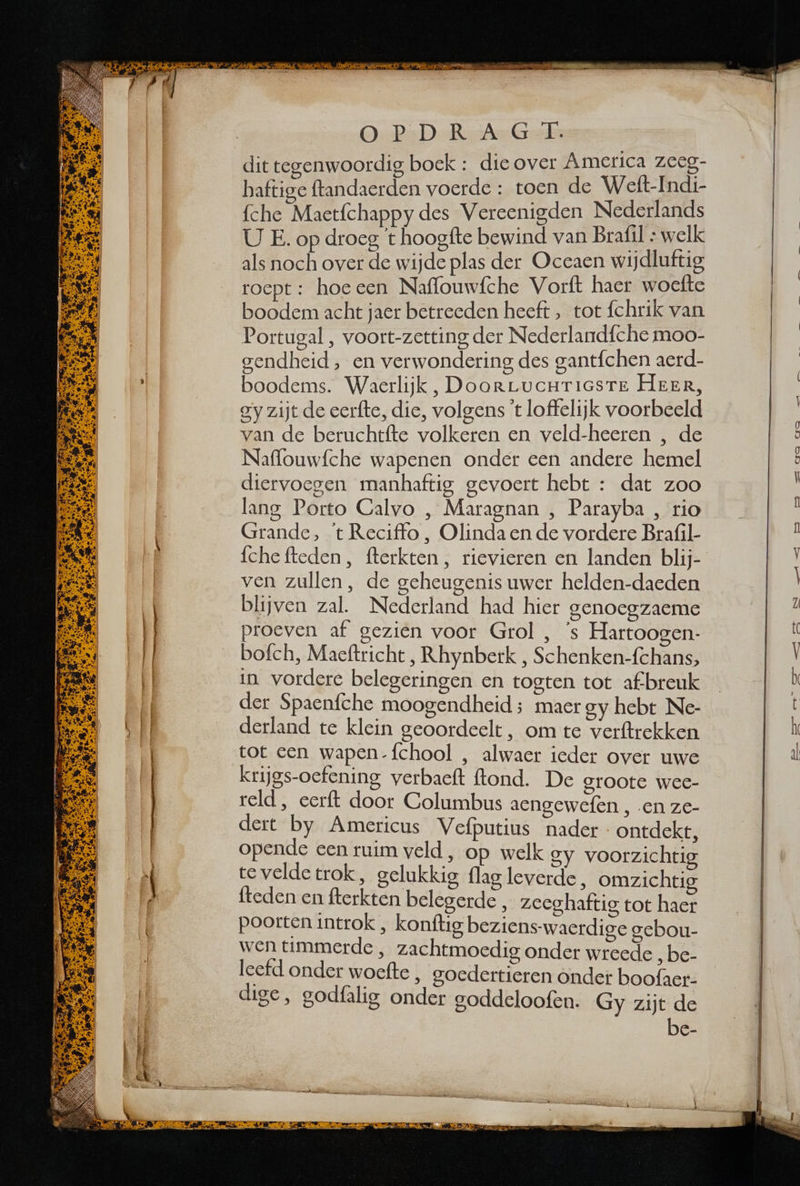 OPDRAGT.
dit tegenwoordig boek : die over America zeeg-
haftige ſtandaerden voerde : toen de Weſt-Indi-
ſche Maetſchappy des Vereenigden Nederlands
U E. op droeg 't hoogſte bewind van Braſil : welk
als noch over de wijde plas der Oceaen wijdluftig
roept : hoe een Naſſouwſche Vorſt haer woeſte
boodem acht jaer betreeden heeft , tot ſchrik van
Portugal , voort-zetting der Nederlandſche moo-
gendheid , en verwondering des gantſchen aerd-
boodems. Waerlijk , DOORLUCHTIGSTE HEER,
gy zijt de eerſte, die, volgens 't loffelijk voorbeeld
van de beruchtſte volkeren en veld-heeren , de
Naſſouwſche wapenen onder een andere hemel
diervoegen manhaftig gevoert hebt : dat zoo
lang Porto Calvo , Maragnan , Parayba , rio
Grande, 't Reciffo , Olinda en de vordere Braſil-
ſche ſteden, ſterkten, rievieren en landen blij-
ven zullen, de geheugenis uwer helden-daeden
blijven zal. Nederland had hier genoegzaeme
proeven af gezien voor Grol , 's Hartoogen-
boſch, Maeſtricht , Rhynberk , Schenken-ſchans,
in vordere belegeringen en togten tot afbreuk
der Spaenſche moogendheid ; maer gy hebt Ne-
derland te klein geoordeelt, om te verſtrekken
tot een wapen-ſchool , alwaer ieder over uwe
krijgs-oefening verbaeſt ſtond. De groote wee-
reld, eerſt door Columbus aengeweſen, en ze-
dert by Americus Veſputius nader ontdekt,
opende een ruim veld, op welk gy voorzichtig
te velde trok, gelukkig ſlag leverde, omzichtig
ſteden en ſterkten belegerde, zeeghaftig tot haer
poorten introk , konſtig beziens-waerdige gebou-
wen timmerde, zachtmoedig onder wreede , be-
leefd onder woeſte, goedertieren onder booſaer-
dige, godſalig onder goddelooſen. Gy zijt de
be-